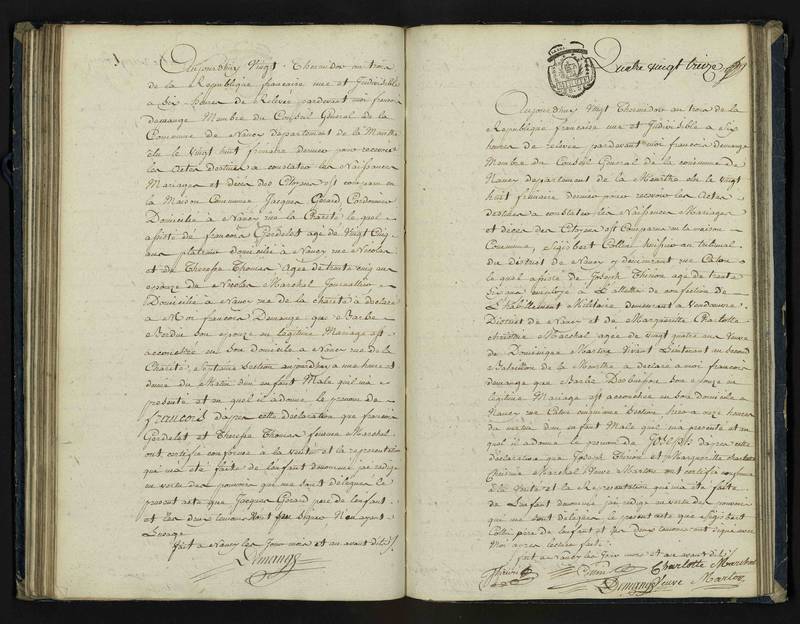 Aujourd'huy Vingt Thermidor an trois
de la Republique francoise une et Indivisible
a Six heures de Relevée pardevant moi francois
demange Membre du Conseil General de la
Commune de Nancy departement de la Meurthe
elu le Vingt huit frimaire dernier pour recevoir
les Actes destinés a constater les Naissances
Mariages et deces des Citoyens est comparu en
la Maison Commune Jacques Gerard Cordonnier
Domicilié a Nancy rue la Charité le quel
assisté de francois Gerdelet agé de Vingt Cinq
ans platrier domicilié à Nancy rue Nicolas
et de Therese Thomas Agée de trente cinq ans
epouse de Nicolas Marchal Journallier
Domicilié a Nancy rue de la charité a declaré
a Moi francois Demange que Barbe
son epouse en légitime Mariage est
accouchée en son domicile a Nancy rue de la
Charité, Septieme Section aujourdhuy a une heure et
demie du Matin d'un enfant Male qu'il m'a
presenté et au quel il a donné le prenom de
francois d'apres cette déclaration que francois
Gerdelet et Therese Thomas femme Marchal
ont certifié conforme à la verité et la representation
qui m'a été faite de l'enfant denommé jai redigé
en vertu des pouvoirs qui me sont délégués le
present acte que Jacques Gerard pere de l'enfant
et les deux temoins n'ont pas Signés, N'en ayant
l'usage
fait a Nancy les Jour mois et an avant dits
Demange
Quatre vingt treize
Aujourd'huy Vingt Thermidor an trois de la
Republique francoise une et Indivisible a Six
heures de relevée pardevant moi francois demange
Membre du Conseil General de la commune de
Nancy departement de la Meurthe elu le Vingt
huit frimaire dernier pour recevoir les Actes
destinés a constater les Naissances Mariages
et deces des Citoyens est Comparu en la maison
Commune, Sigisbert Collin huissier au tribunal
du District de Nancy y demeurant rue
le quel assisté de Joseph Thirion agé de trente
six ans employé a L'attelier de confection de
L'habillement Militaire demeurant a Vandoeuvre
District de Nancy et de Marguerite Charlotte
Marchal agée de vingt quatre ans Veuve
de Dominique Martin Vivant Lieutenant au Second
Bataillon de la Meurthe a declaré a moi francois
demange que Barbe son epouse en
légitime Mariage est accouchée en son domicile a
Nancy rue cinquieme Section hier a onze heures
du matin d'un enfant Male qu'il m'a presenté et au
quel il a donné le prenom de Joseph d'apres cette
déclaration que Joseph Thirion et Marguerite charlotte
Marchal Veuve ont certifié conforme
à la Verité et la Representation qui m'a été faite
de L'enfant denommé j'ai redigé en vertu des pouvoirs
qui me sont délégués le présent acte que Sigisbert
Collin pere de l'enfant et les Deux temoins ont signé avec
Moi apres lecture faite
fait a Nancy les Jour mois et an avant dits
Charlotte Marchal
Demange Veuve